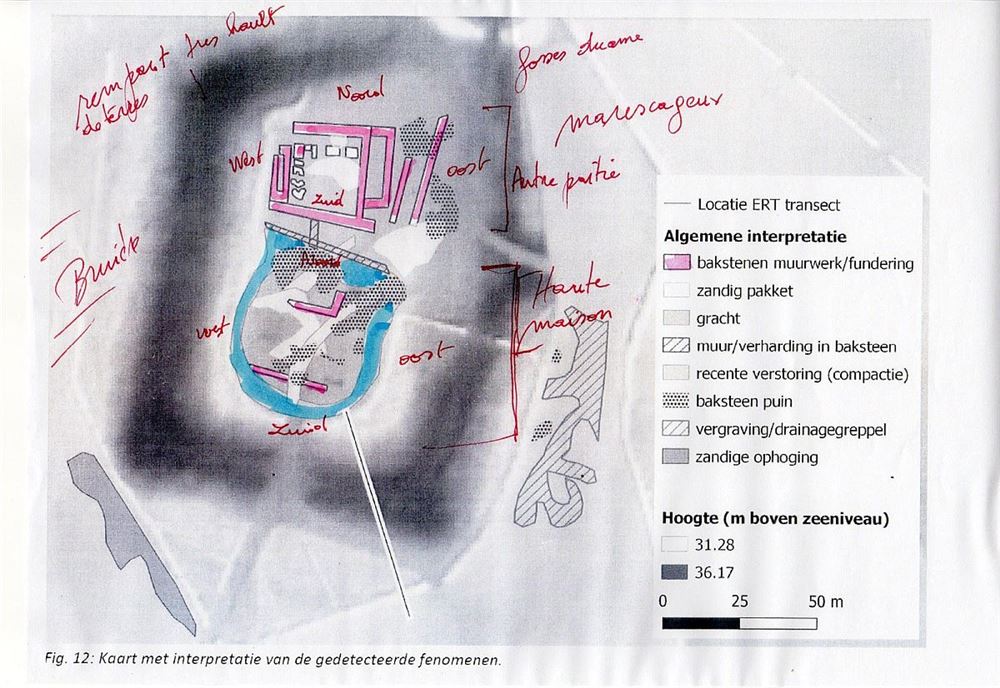 rempart très hault
de terres
fosses
marescageux
Noord
West
oost
Zuid
Autre partie
Noord
West
oost
Zuid
Haute
maison
Locatie ERT transect
Algemene interpretatie
bakstenen muurwerk/fundering
zandig pakket
gracht
muur/verharding in baksteen
recente verstoring (compactie)
baksteen puin
vergraving/drainagegreppel
zandige ophoging
Hoogte (m boven zeeniveau)
31.28
36.17
0 25 50 m
Fig. 12: Kaart met interpretatie van de gedetecteerde fenomenen.